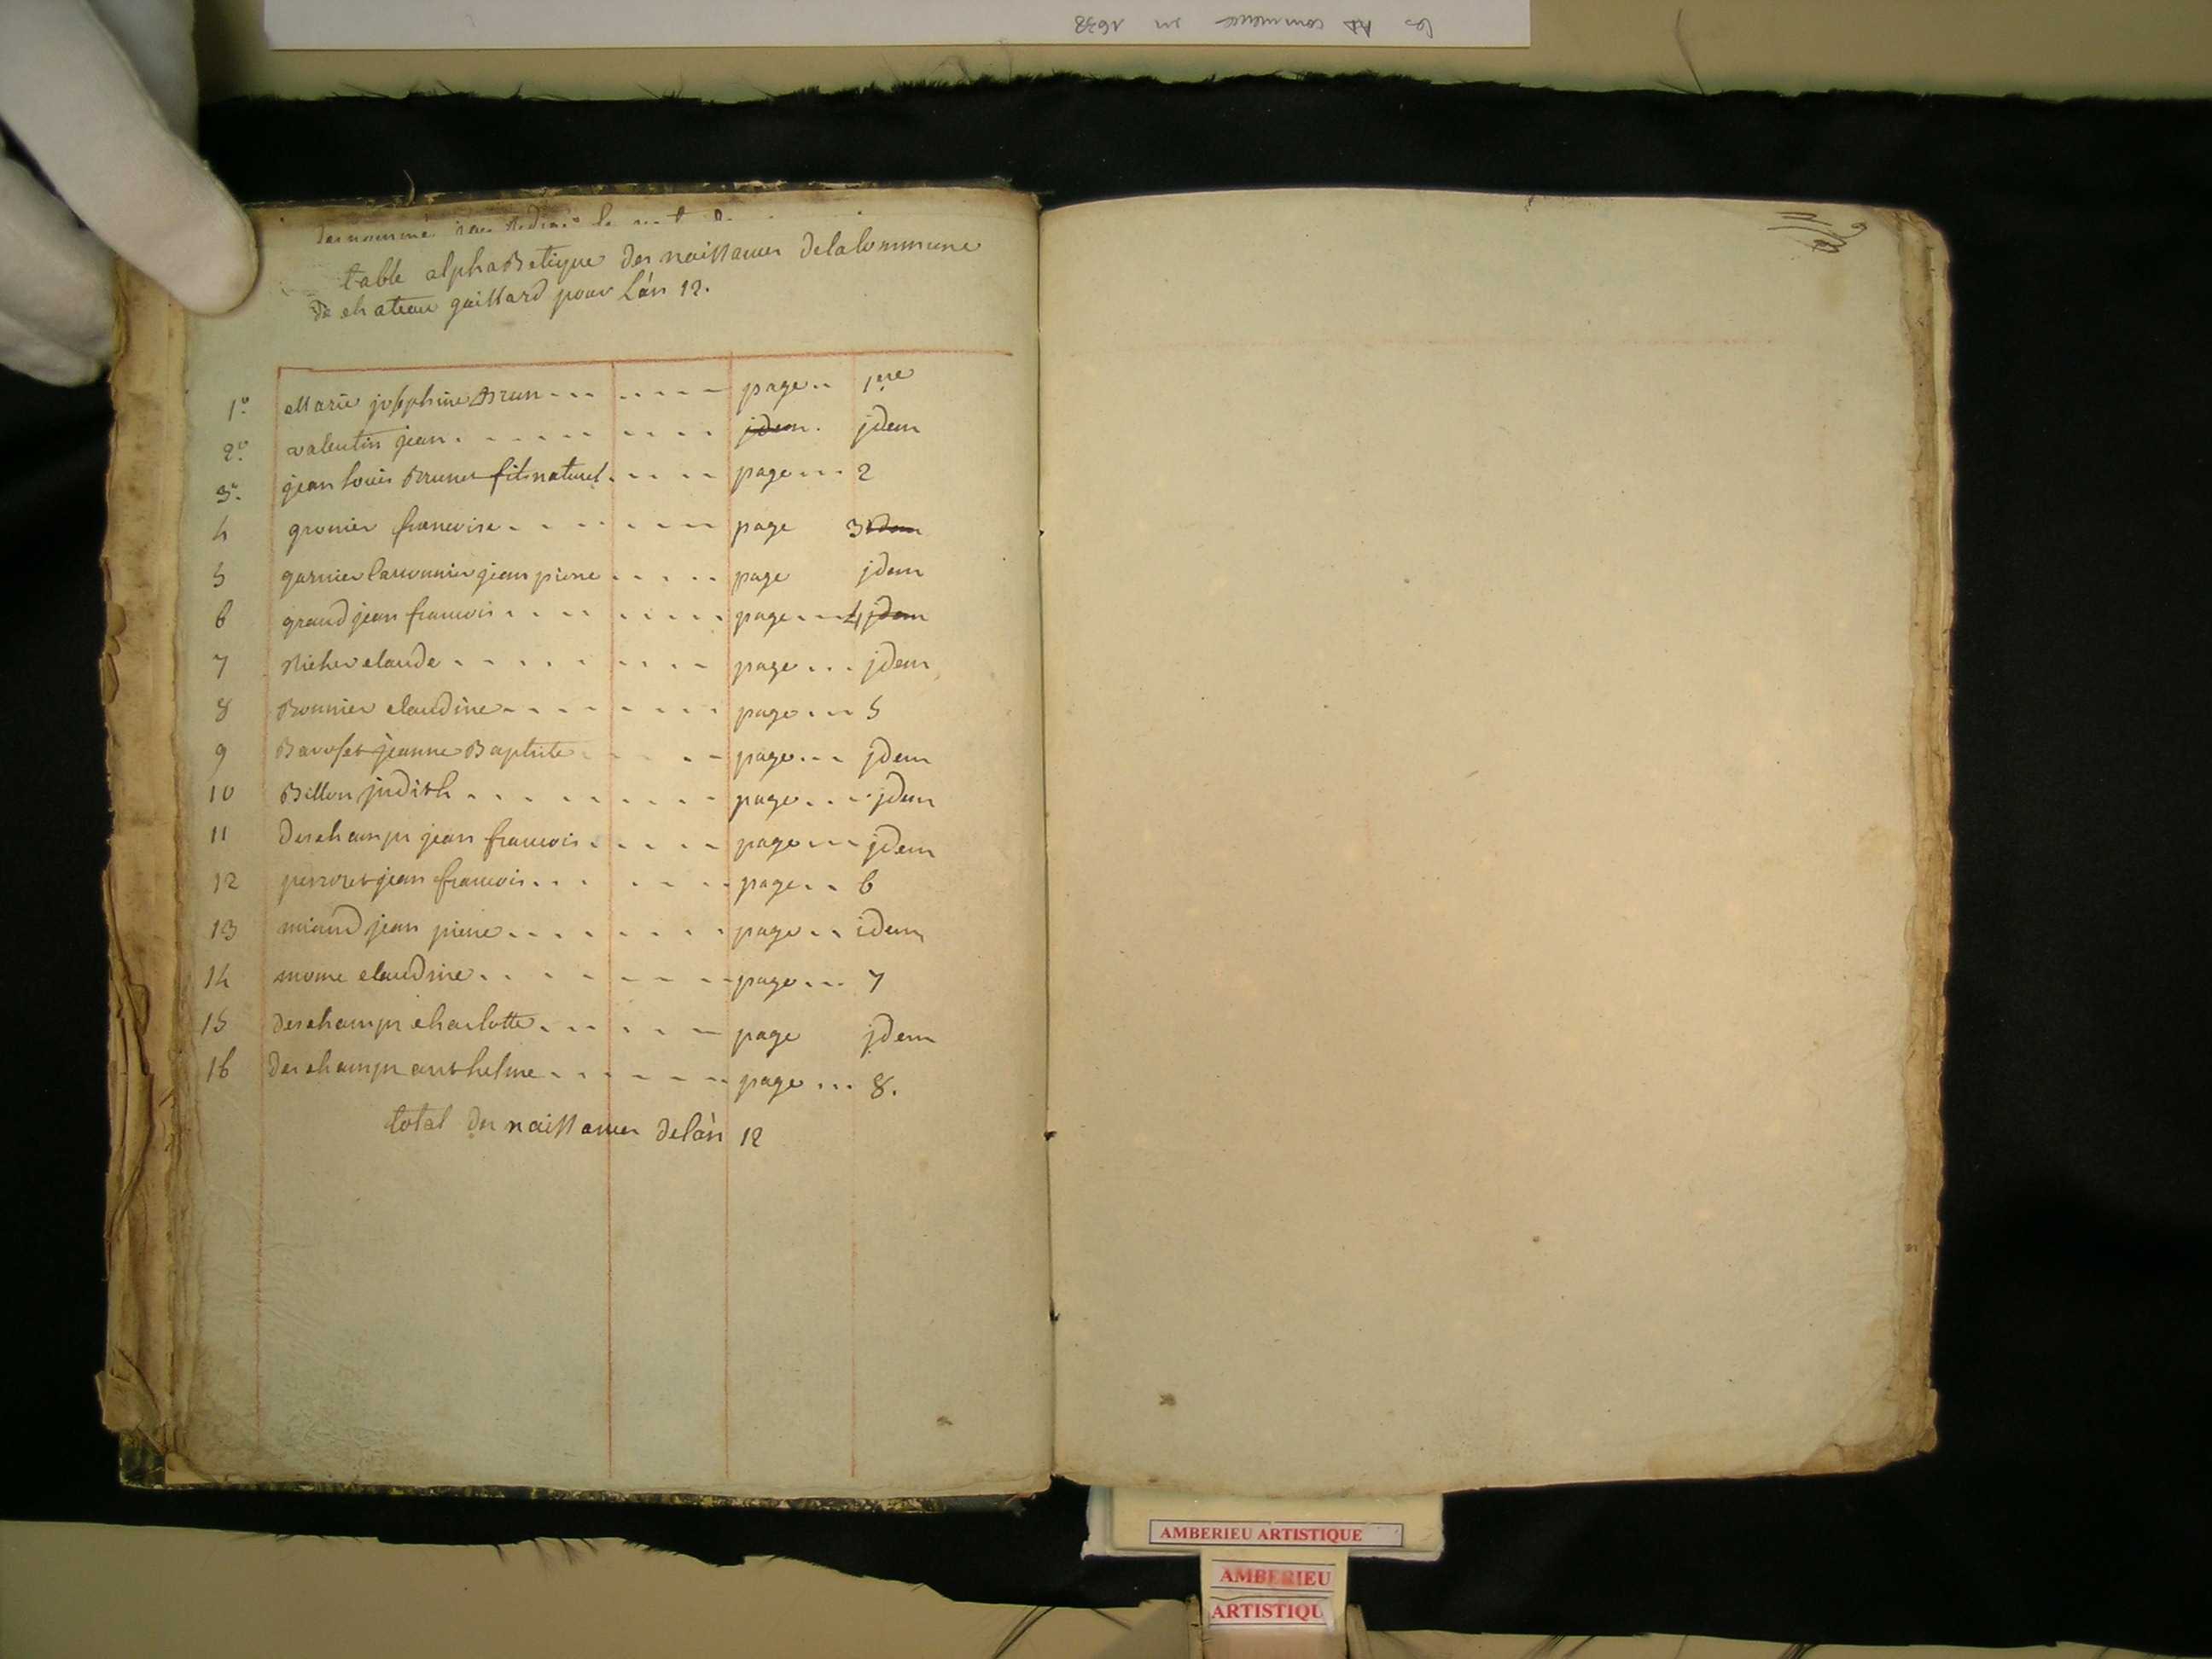 les commence en 1638
table alphabetique des naissances dela Commune
de chateau gaillard pour L'an 12.
1º Marie josephine Brun - - - - - - - page .. 1ere
2º valentin jean . - - - - - - - - - jdem . jdem
3º jean louis Brunet fils naturel . - - - - page - - - 2
4 gronier francoise - - - - - - - - page 3 idem
5 garnier jean pierre . . . . . page jdem
6 grand jean francois . . . . . . . . . page - - - 4 jdem
7 Richer claude - - - - - - - - - - page . . . jdem
8 Bonnier claudine - - - - - - - - page - - - 5
9 jeanne Baptiste - - - - page - - - jdem
10 Billon judith . . . . . . . . - - page . . - jdem
11 Deschamps jean francois . . . . - page - - - jdem
12 perret jean francois . . . - - - page . . 6
13 miaud jean pierre . . . . . . . . page . . idem
14 claudine . . - - - - - - page . . . 7
15 Deschamps charlotte . . . . . - page jdem
16 Deschamps anthelme - - - - - - - page . . . 8.
total des naissances delàn 12
AMBERIEU ARTISTIQUE
AMBERIEU
ARTISTIQU